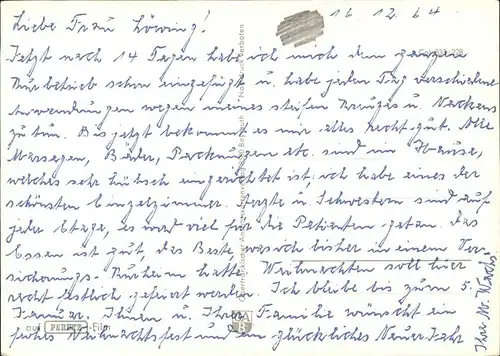 16 12 64
Liebe Frau Löwing!
Jetzt nach 14 Tagen habe ich mich dem ganzen
Kurbetrieb schon eingefügt u. habe jeden Tag verschiedene
Anwendungen wegen meines steifen Kreuzes u. Nackens
zu tun. Bis jetzt bekommt es mir alles recht gut. Alle
Massagen, Bäder, Packungen etc. sind im Hause,
welches sehr hübsch eingerichtet ist; ich habe eines der
schönsten Einzelzimmer. Ärzte u. Schwestern sind auf
jeder Etage, es wird viel für die Patienten getan. Das
Essen ist gut, das Beste, was ich bisher in einem Ver-
sicherungs-Kurheim hatte. Weihnachten soll hier
recht festlich gefeiert werden. Ich bleibe bis zum 5.
Januar. Ihnen u. Ihrer Familie wünscht ein
frohes Weihnachtsfest und ein glückliches Neues Jahr
Ihre M. Wachs
auf PERUTZ-Film
Nachdruck verboten